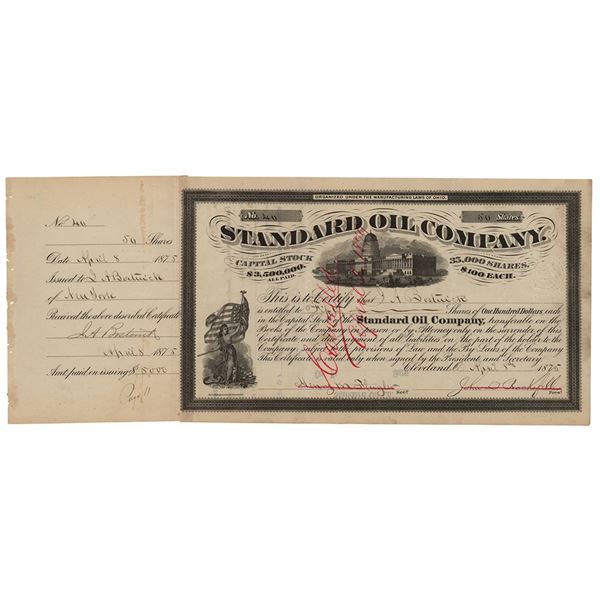 No 40
50 Shares
Date April 8 1875
Issued to J A Bostwick
of New York
Received the above described Certificate
J A Bostwick
April 8 1875
Amt paid on issuing $5000
ORGANIZED UNDER THE MANUFACTURING LAWS OF OHIO.
No. 40
50 Shares
STANDARD OIL COMPANY.
CAPITAL STOCK
$3,500,000.
ALL PAID.
35,000 SHARES.
$100 EACH.
This is to Certify that J A Bostwick
is entitled to Fifty Shares of One Hundred Dollars, each
in the Capital Stock of the Standard Oil Company, transferable on the
Books of the Company in person or by Attorney only on the surrender of this
Certificate and the payment of all liabilities on the part of the holder to the
Company, subject to the provisions of Law and the By Laws of the Company
This Certificate is valid only when signed by the President, and Secretary
Cleveland, O. April 8th 1875
Secy
John D Rockefeller
Prest
Cancelled